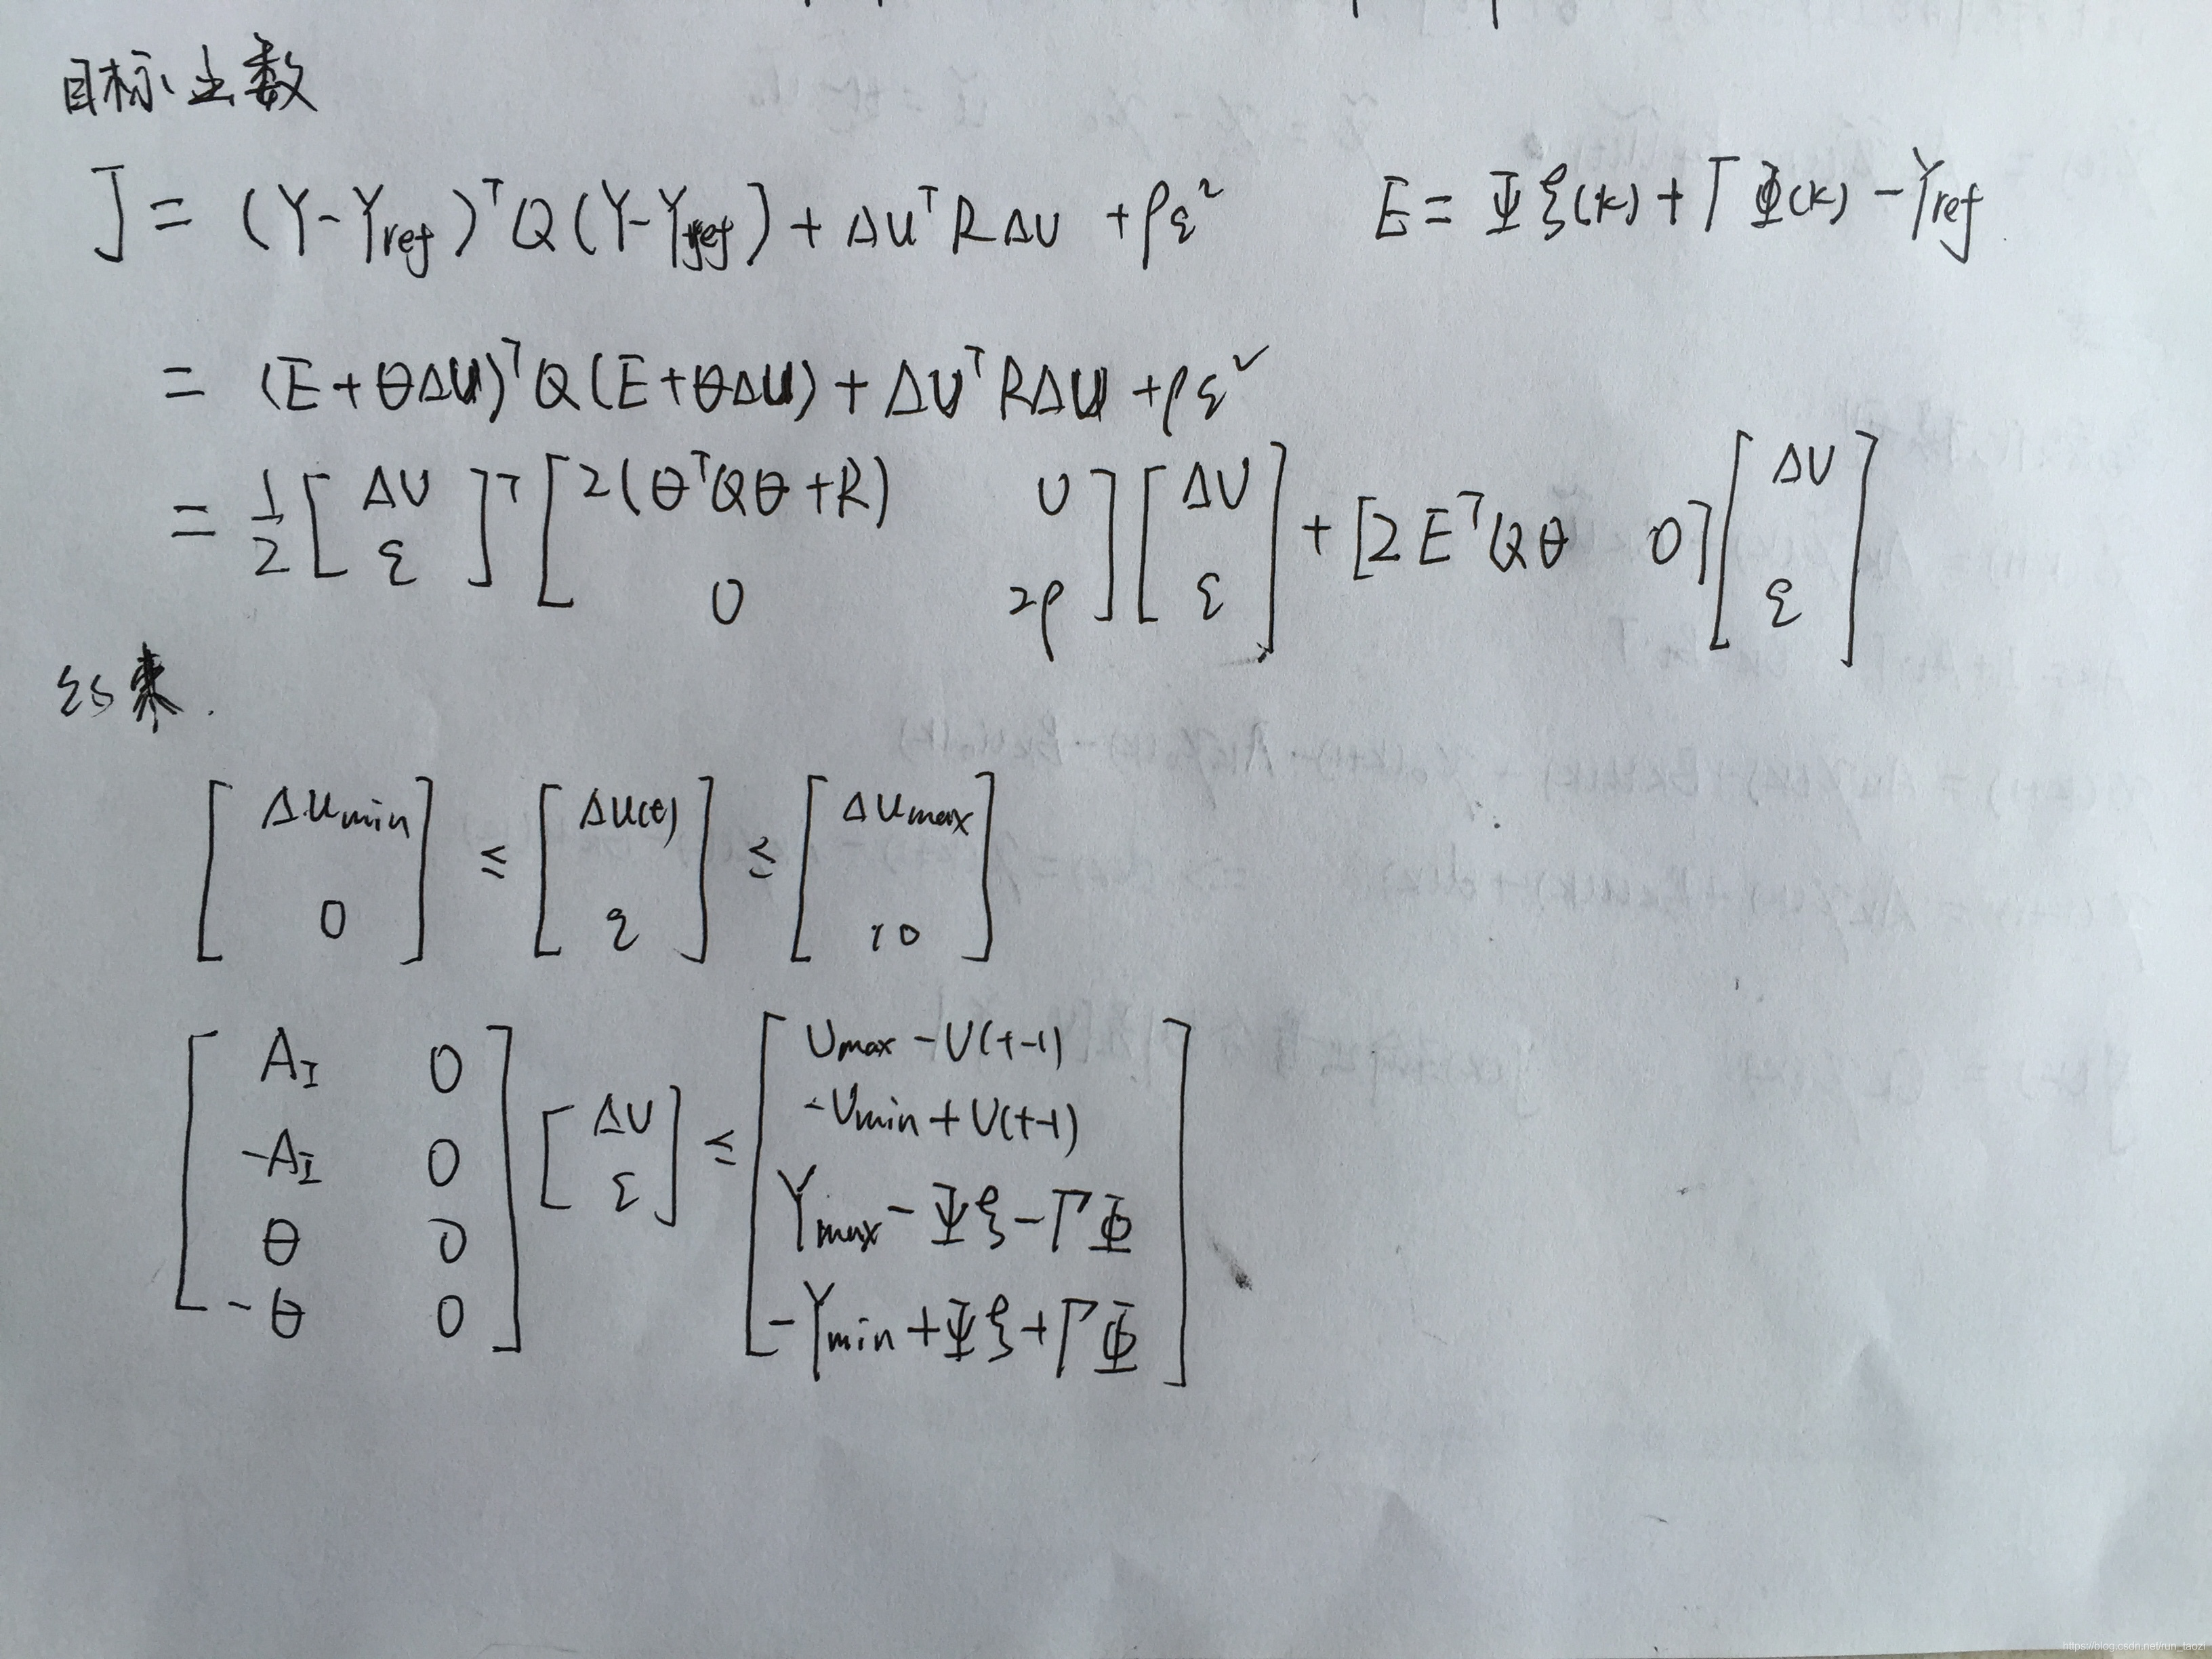 目标函数
J = (Y-Yref)ᵀQ(Y-Yref) + ΔUᵀRΔU + ρε²    E = Ψξ(k) + ΓΦ(k) - Yref
= (E+θΔU)ᵀQ(E+θΔU) + ΔUᵀRΔU + ρε²
= 1/2 [ΔU; ε]ᵀ [2(θᵀQθ+R) 0; 0 2ρ] [ΔU; ε] + [2EᵀQθ 0] [ΔU; ε]
约束.
[ΔUmin; 0] ≤ [ΔU(t); ε] ≤ [ΔUmax; 10]
[A_I 0; -A_I 0; θ 0; -θ 0] [ΔU; ε] ≤ [Umax - U(t-1); -Umin + U(t-1); Ymax - Ψξ - ΓΦ; -Ymin + Ψξ + ΓΦ]
https://blog.csdn.net/run_taozi